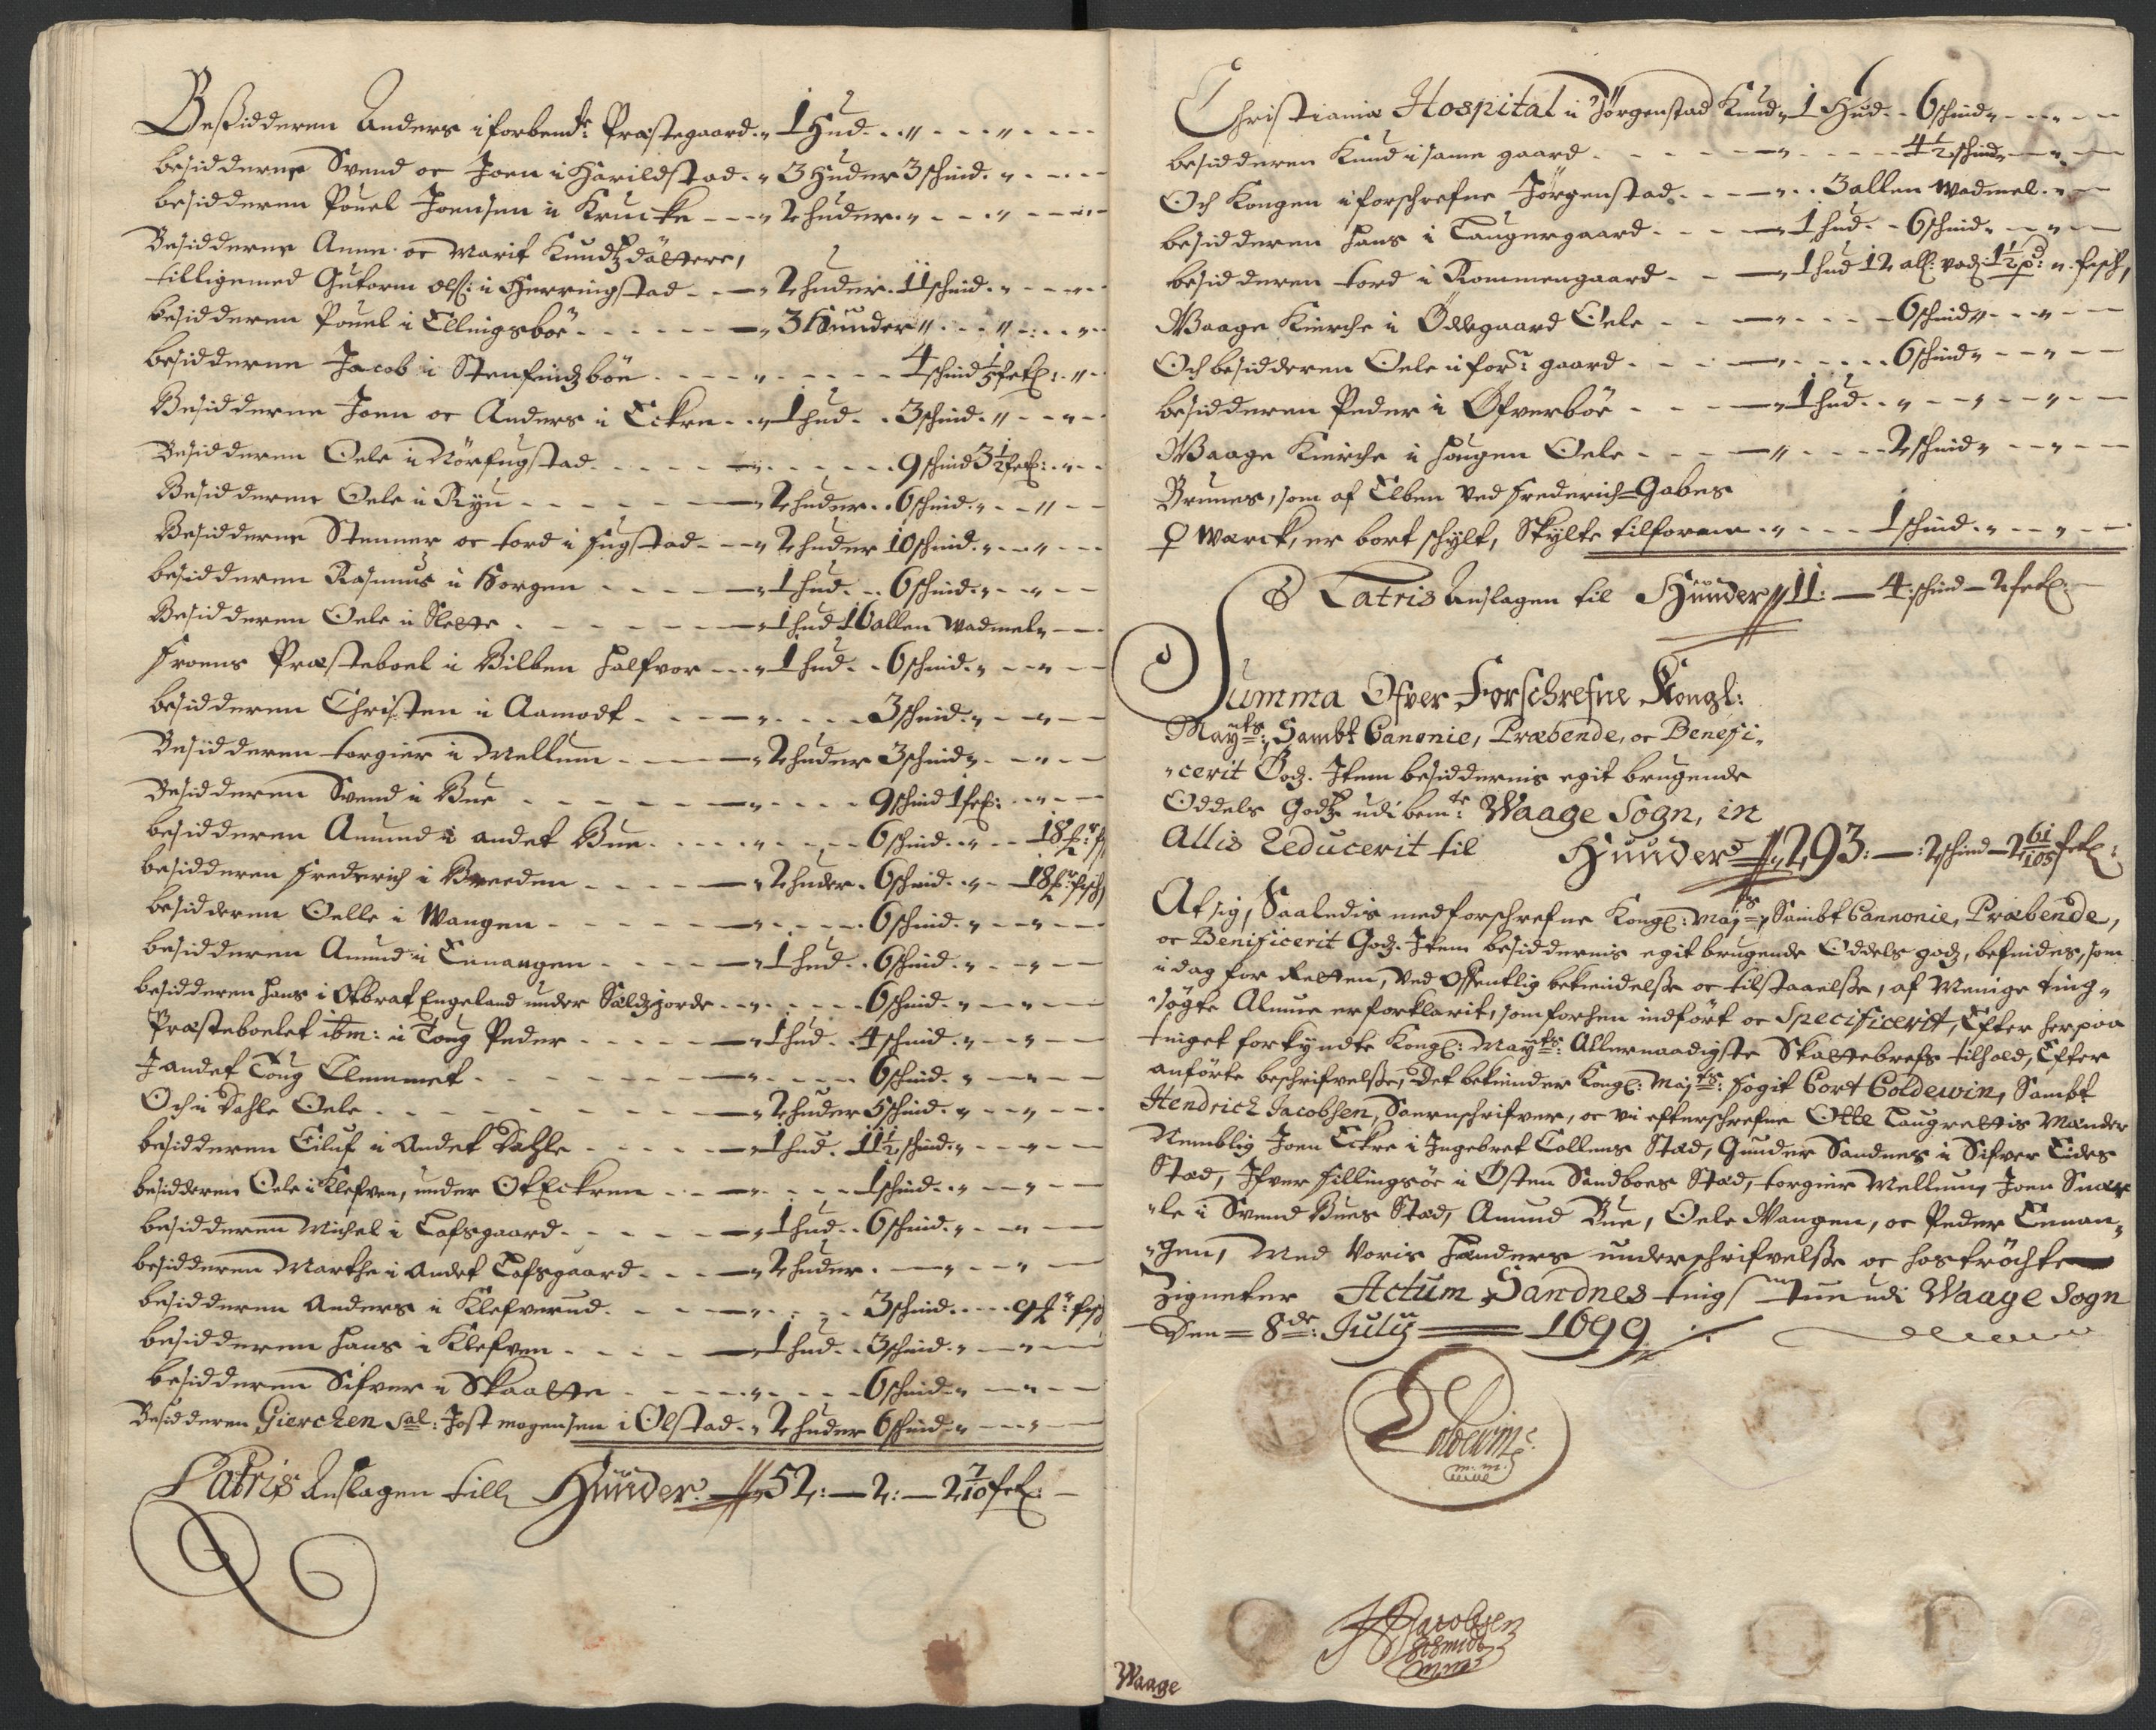 Beßidderen Anders i forbemte: Præstegaard „ 1 Hud „ „
besidderne Svend oc Joen i Harildstad „ 3 Huder 3 schind „
besidderen Pouel Joensen i Krucke „ 2 huder „ „
Besidderne Anne oc Marit Knudtzdöttere,
tilligemed Gutorm Ols: i Herringstad „ 2 huder 11 schind „ „
besidderen Pouel i Ellingsböe „ 3 Hunder „ „ „
besidderne Jacob i Stenfindzböe „ 4 schind 1/5 sk: „
Besidderne Joen oc Anders i Eckre „ 1 hud 3 schind „ „
Besidderen Oele i Nörfugstad „ 9 schind 3 1/2 sk: „
Besidderene Oele i Ryu „ 2 huder 6 schind „ „
Besidderne Stenner oc tord i fugstad „ 2 huder 10 schind „ „
besidderen Rasmus i Horgen „ 1 hud 6 schind „ „
Besidderen Oele i Slette „ 1 hud 16 allen Wadmel „
froens Præsteboel i Bilben Halfvor „ 1 hud 6 schind „ „
besidderen Christen i Aamodt „ 3 schind „ „
Besidderen torgier i Mellum „ 2 huder 3 schind „ „
Besidderen Svend i Bue „ 9 schind 1 sk: „
besidderen Amund i andet Bue „ 6 schind „ 18
besidderen frederich i Breeden „ 2 huder 6 schind „ 18 fisch
besidderen Oelle i Wangen „ 6 schind „ „
besidderen Amund i Ennangen „ 1 hud 6 schind „ „
besidderen Hans i Otbrat Engeland under Saldzjorde „ 6 schind „ „
Præsteboelet ibm: i Toug Peder „ 1 hud 4 schind „ „
J andet Toug Clemmet „ 6 schind „ „
Och i Dahle Oele „ 2 huder 5 schind „ „
besidderen Eiluf i Andet Dahle „ 1 hud 11 1/2 schind „ „
besidderen Oele i Klefven, under OtEckren „ 1 schind „ „
besidderen Michel i Lofsgaard „ 1 hud 6 schind „ „
besidderen Marthe i Andet Lofsgaard „ 2 huder „ „
besidderen Anders i Klefverud „ 3 schind 9 fisch
besidderen Hans i Klefven „ 1 hud 3 schind „ „
besidderen Sifver i Skaatte „ 6 schind „ „
Besidderen Gierchen Sal: Jost mogensen i Olstad „ 2 huder 6 schind „ „
Latris Anslagen till Hunder 52: — 2: — 2 7/10 sk:
Christiania Hospital i Jörgenstad Knud „ 1 Hud 6 schind „ „
besidderen Knud i same gaard „ 4 1/2 schind „ „
Och Kongen i forschrefne Jörgenstad „ 3 allen Wadmel „
besidderen Hans i Taugergaard „ 1 hud 6 schind „ „
besidderen tord i Rommengaard „ 1 hud 12 all: vad: 1 1/2 pd: „ fisch,
Waage Kierche i Ödegaard Oele „ 6 schind „ „
Och besidderen Oele i forne gaard „ 6 schind „ „
besidderen Peder i Öfverböe „ 1 hud „ „ „
Waage Kierche i Haugen Oele „ 2 schind „ „
Brunes, som af Elben ved frederich Gabes
♀ Warck, er bort schylt, Skylte tilforne „ 1 schind „ „
Latris Anslagen til Hunder 11: — 4 schind — 2 sk:
Summa Ofver Forschrefne Kongl:
Mayts: Sambt Canonie, Præbende, oc Benefi-
cerit Godz. Jtem besiddernis egit brugende
Oddels Godtz udi bemte: Waage Sogn, in
Allis Reducerit til Hunder 293: — 2 schind — 2 61/105 sk:
At sig, Saaledis med forschrefne Kongl: May:ts Sambt Cannonie, Præbende,
oc Benificerit Godz. Jtem besiddernis egit brugende Oddels godz, befindes, som
i dag for Retten, ved offentlig bekiendelsse oc tilstaaelsse, af Menige ting-
søgte Almue er forklarit, som forhen indfört oc Specificerit, Efter herpaa
tinget forkyndte Kongl: Mayts: Allernaadigste Skattebrefs tilhold, Efter
anförte beschrifvelsse, Det bekiender Kongl: Mayts: fogit Cort Coldewin, Sambt
Hendrich Jacobsen, Sorenschrifver, oc vi efterschrefne Otte Laugrettis Mænder
Nemblig Joen Eckre i Ingebret Tollens Stæd, Gunder Sandnes i Sifver Eides
Stæd, Ifver fillingsöe i Østen Sandboes Stæd, torgier Mellum, Joen Snær-
le i Svend Bues Stæd, Amund Bue, Oele Wangen, oc Peder Ennan-
gen, Med Voris Hænders underschrifvelsse oc hoströchte
Zigneter Actum Sandnes ting Stue udi Waage Sogn
Den 8de: July 1699
Coldewin
m.m.
HJacobsen
Schmidt
Waage